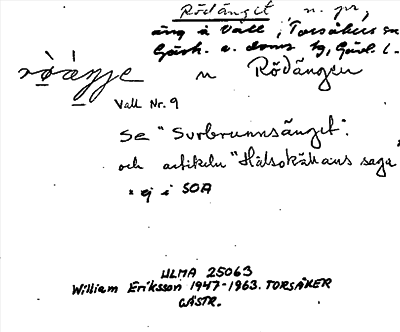 Rödänget, n. pr,
äng å Vall, Torsåkers sn
Gästr. o. doms tg, Gävl. l.
n Rödängen
Vall Nr. 9
Se "Surbrunnsänget".
och artikeln "Hälsokällans saga
* ej i SOA
ULMA 25063
William Eriksson 1947-1963. TORSÅKER
GÄSTR.